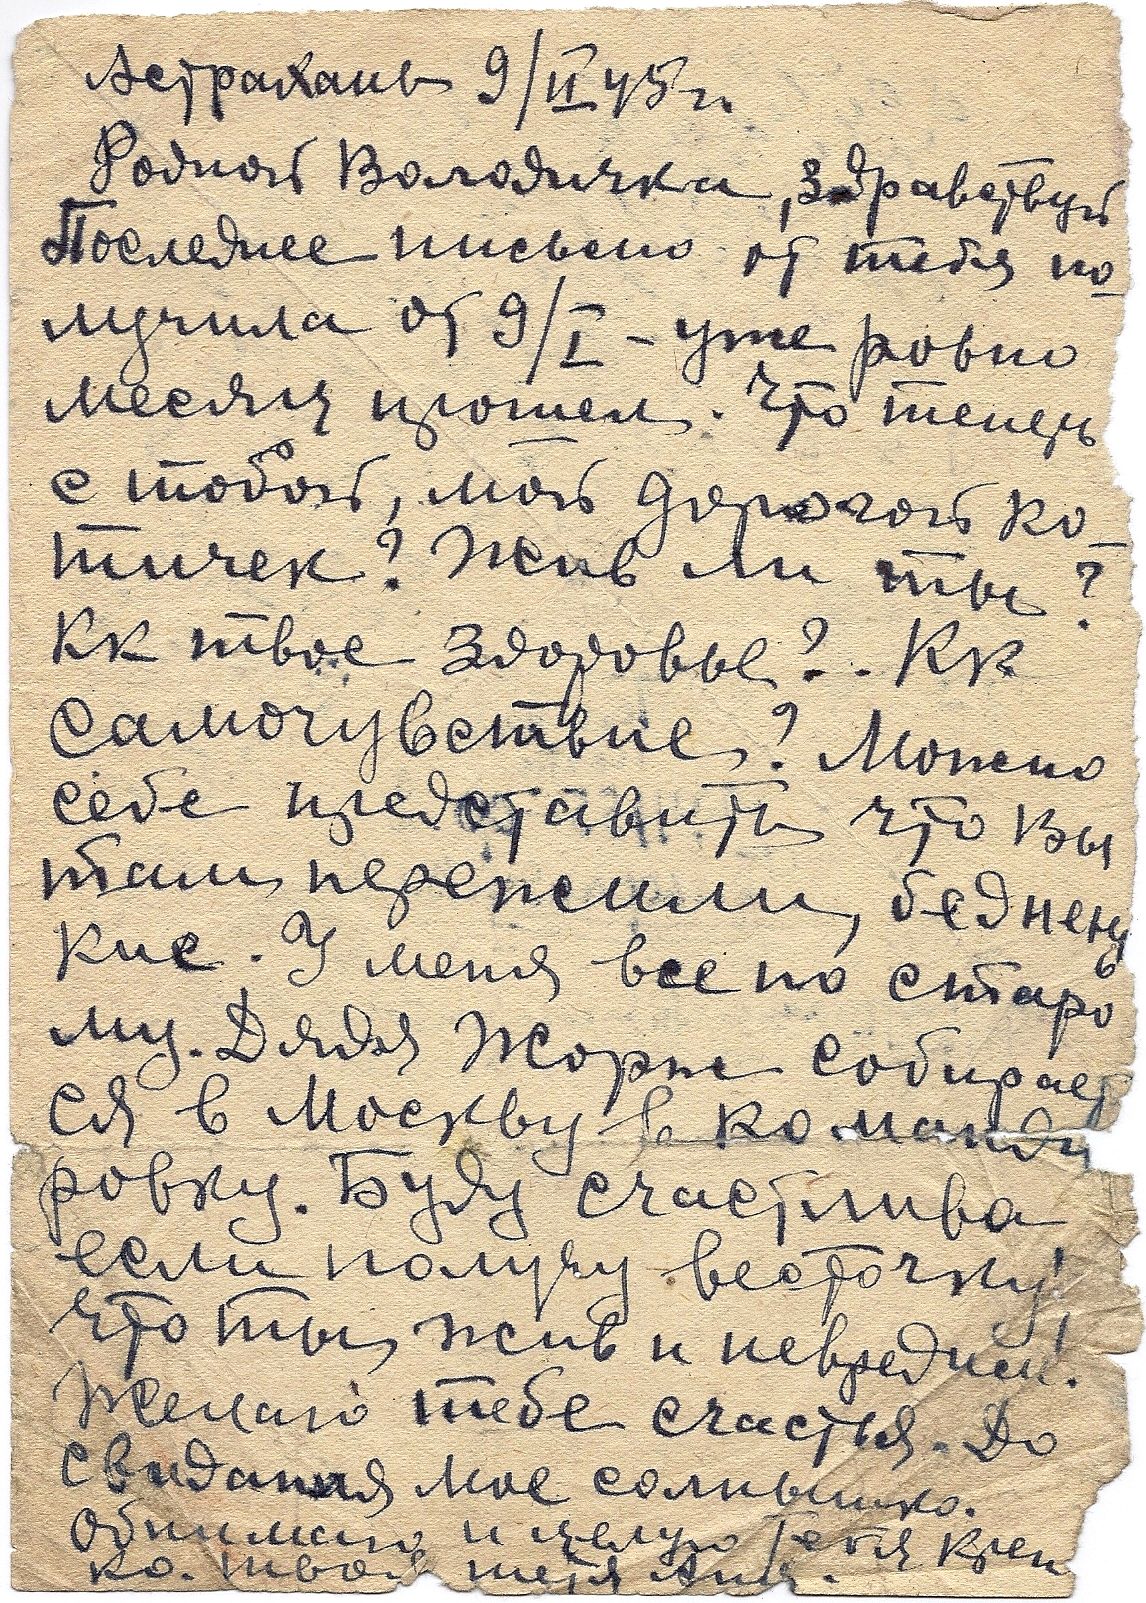 Астрахань 9/II 45 г.
Родной Володичка, здравствуй
Последнее письмо от тебя по-
лучила от 9/I - уже ровно
месяц прошел. Что теперь
с тобой, мой дорогой ко-
тичек? Жив ли ты?
Кк твое здоровье?. Кк
самочувствие? Можно
себе представить что вы
там пережили, бедненъ
кие. У меня все по старо
му. Дядя Жорж собирает
ся в Москву в команди
ровку. Буду счастлива
если получу весточку!
что ты жив и невредим!
Желаю тебе счастья. До
свидания мое солнышко.
Обнимаю и целую тебя креп
ко. Твоя тетя Аня.